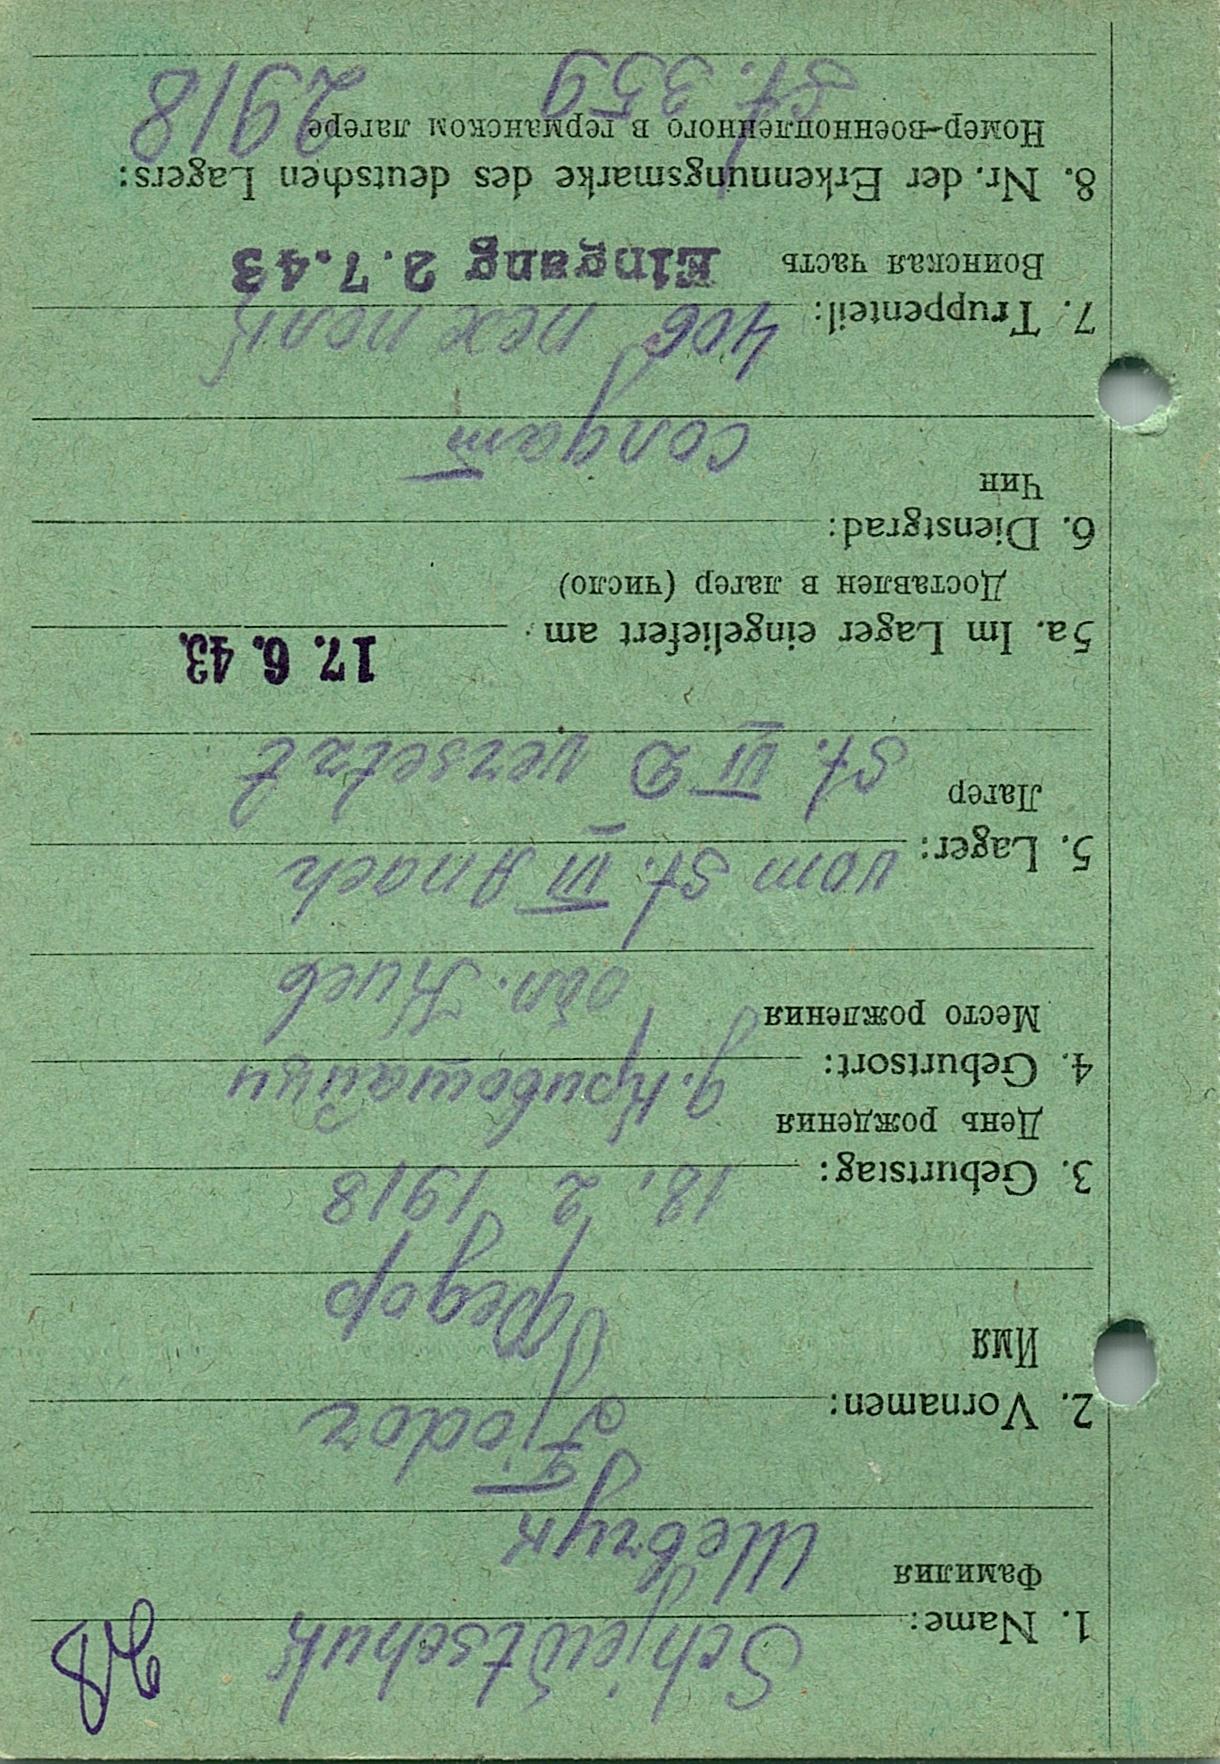 28
1. Name: Schjewtschuk
Фамилия Шевчук
2. Vornamen: Fjodor
Имя Федор
3. Geburtstag: 18. 2 1918
День рождения
4. Geburtsort: д. Кривошайци
Место рождения обл. Киев
5. Lager: vom St. VI A nach
Лагер St. VI D versetzt
5a. Im Lager eingeliefert am 17. 6. 43.
Доставлен в лагер (число)
6. Dienstgrad:
Чин солдат
7. Truppenteil: 406 пех полк
Воинская часть Eingang 2.7.43
8. Nr. der Erkennungsmarke des deutschen Lagers:
Номер-военнопленного в германском лагере 2918
St. 359